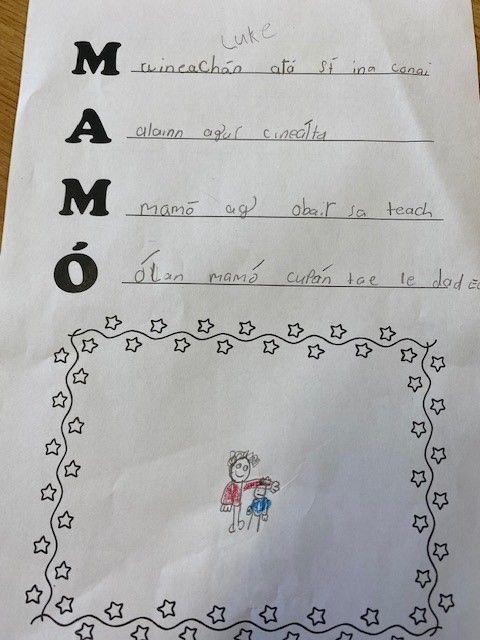 Luke
M uineachán atá sí ina conai
A alainn agus cineálta
M mamó ag obair sa teach
Ó Ólan mamó cupán tae le